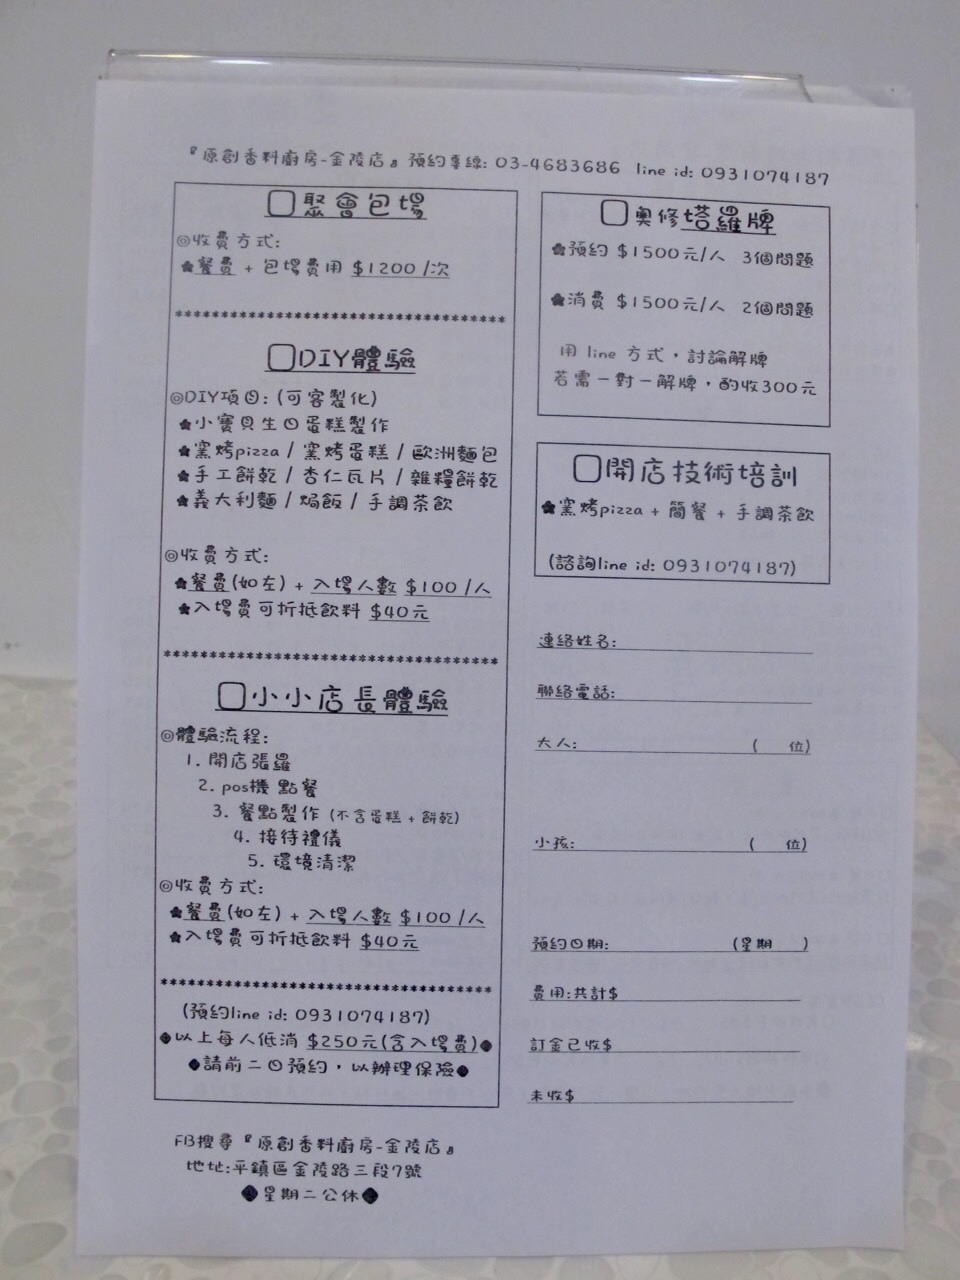 『原創香料廚房-金陵店』預約專線: 03-4683686 line id: 0931074187
聚會包場
◎收費方式:
★餐費 + 包場費用 $1200 /次
************************************
DIY體驗
◎DIY項目: (可客製化)
★小寶貝生日蛋糕製作
★窯烤pizza / 窯烤蛋糕 / 歐洲麵包
★手工餅乾 / 杏仁瓦片 / 雜糧餅乾
★義大利麵 / 焗飯 / 手調茶飲
◎收費方式:
★餐費(如左) + 入場人數 $100 /人
★入場費可折抵飲料 $40元
************************************
小小店長體驗
◎體驗流程:
1. 開店張羅
2. pos機 點餐
3. 餐點製作 (不含蛋糕 + 餅乾)
4. 接待禮儀
5. 環境清潔
◎收費方式:
★餐費(如左) + 入場人數 $100 /人
★入場費可折抵飲料 $40元
************************************
(預約line id: 0931074187)
●以上每人低消 $250元(含入場費)●
●請前二日預約，以辦理保險●
奧修塔羅牌
★預約 $1500元/人 3個問題
★消費 $1500元/人 2個問題
用 line 方式，討論解牌
若需一對一解牌，酌收300元
開店技術培訓
★窯烤pizza + 簡餐 + 手調茶飲
(諮詢line id: 0931074187)
連絡姓名:
聯絡電話:
大人: ( 位)
小孩: ( 位)
預約日期: (星期 )
費用:共計$
訂金已收$
未收$
FB搜尋『原創香料廚房-金陵店』
地址:平鎮區金陵路三段7號
●星期二公休●